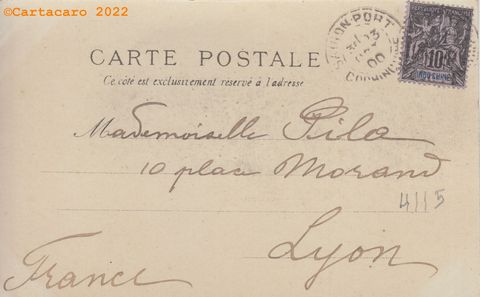 ©Cartacaro 2022
CARTE POSTALE
Ce côté est exclusivement réservé à l'adresse
SAIGON-PORT
COCHINCHINE
10
INDO-CHINE
Mademoiselle Pila
10 place Morand
4115
Lyon
France